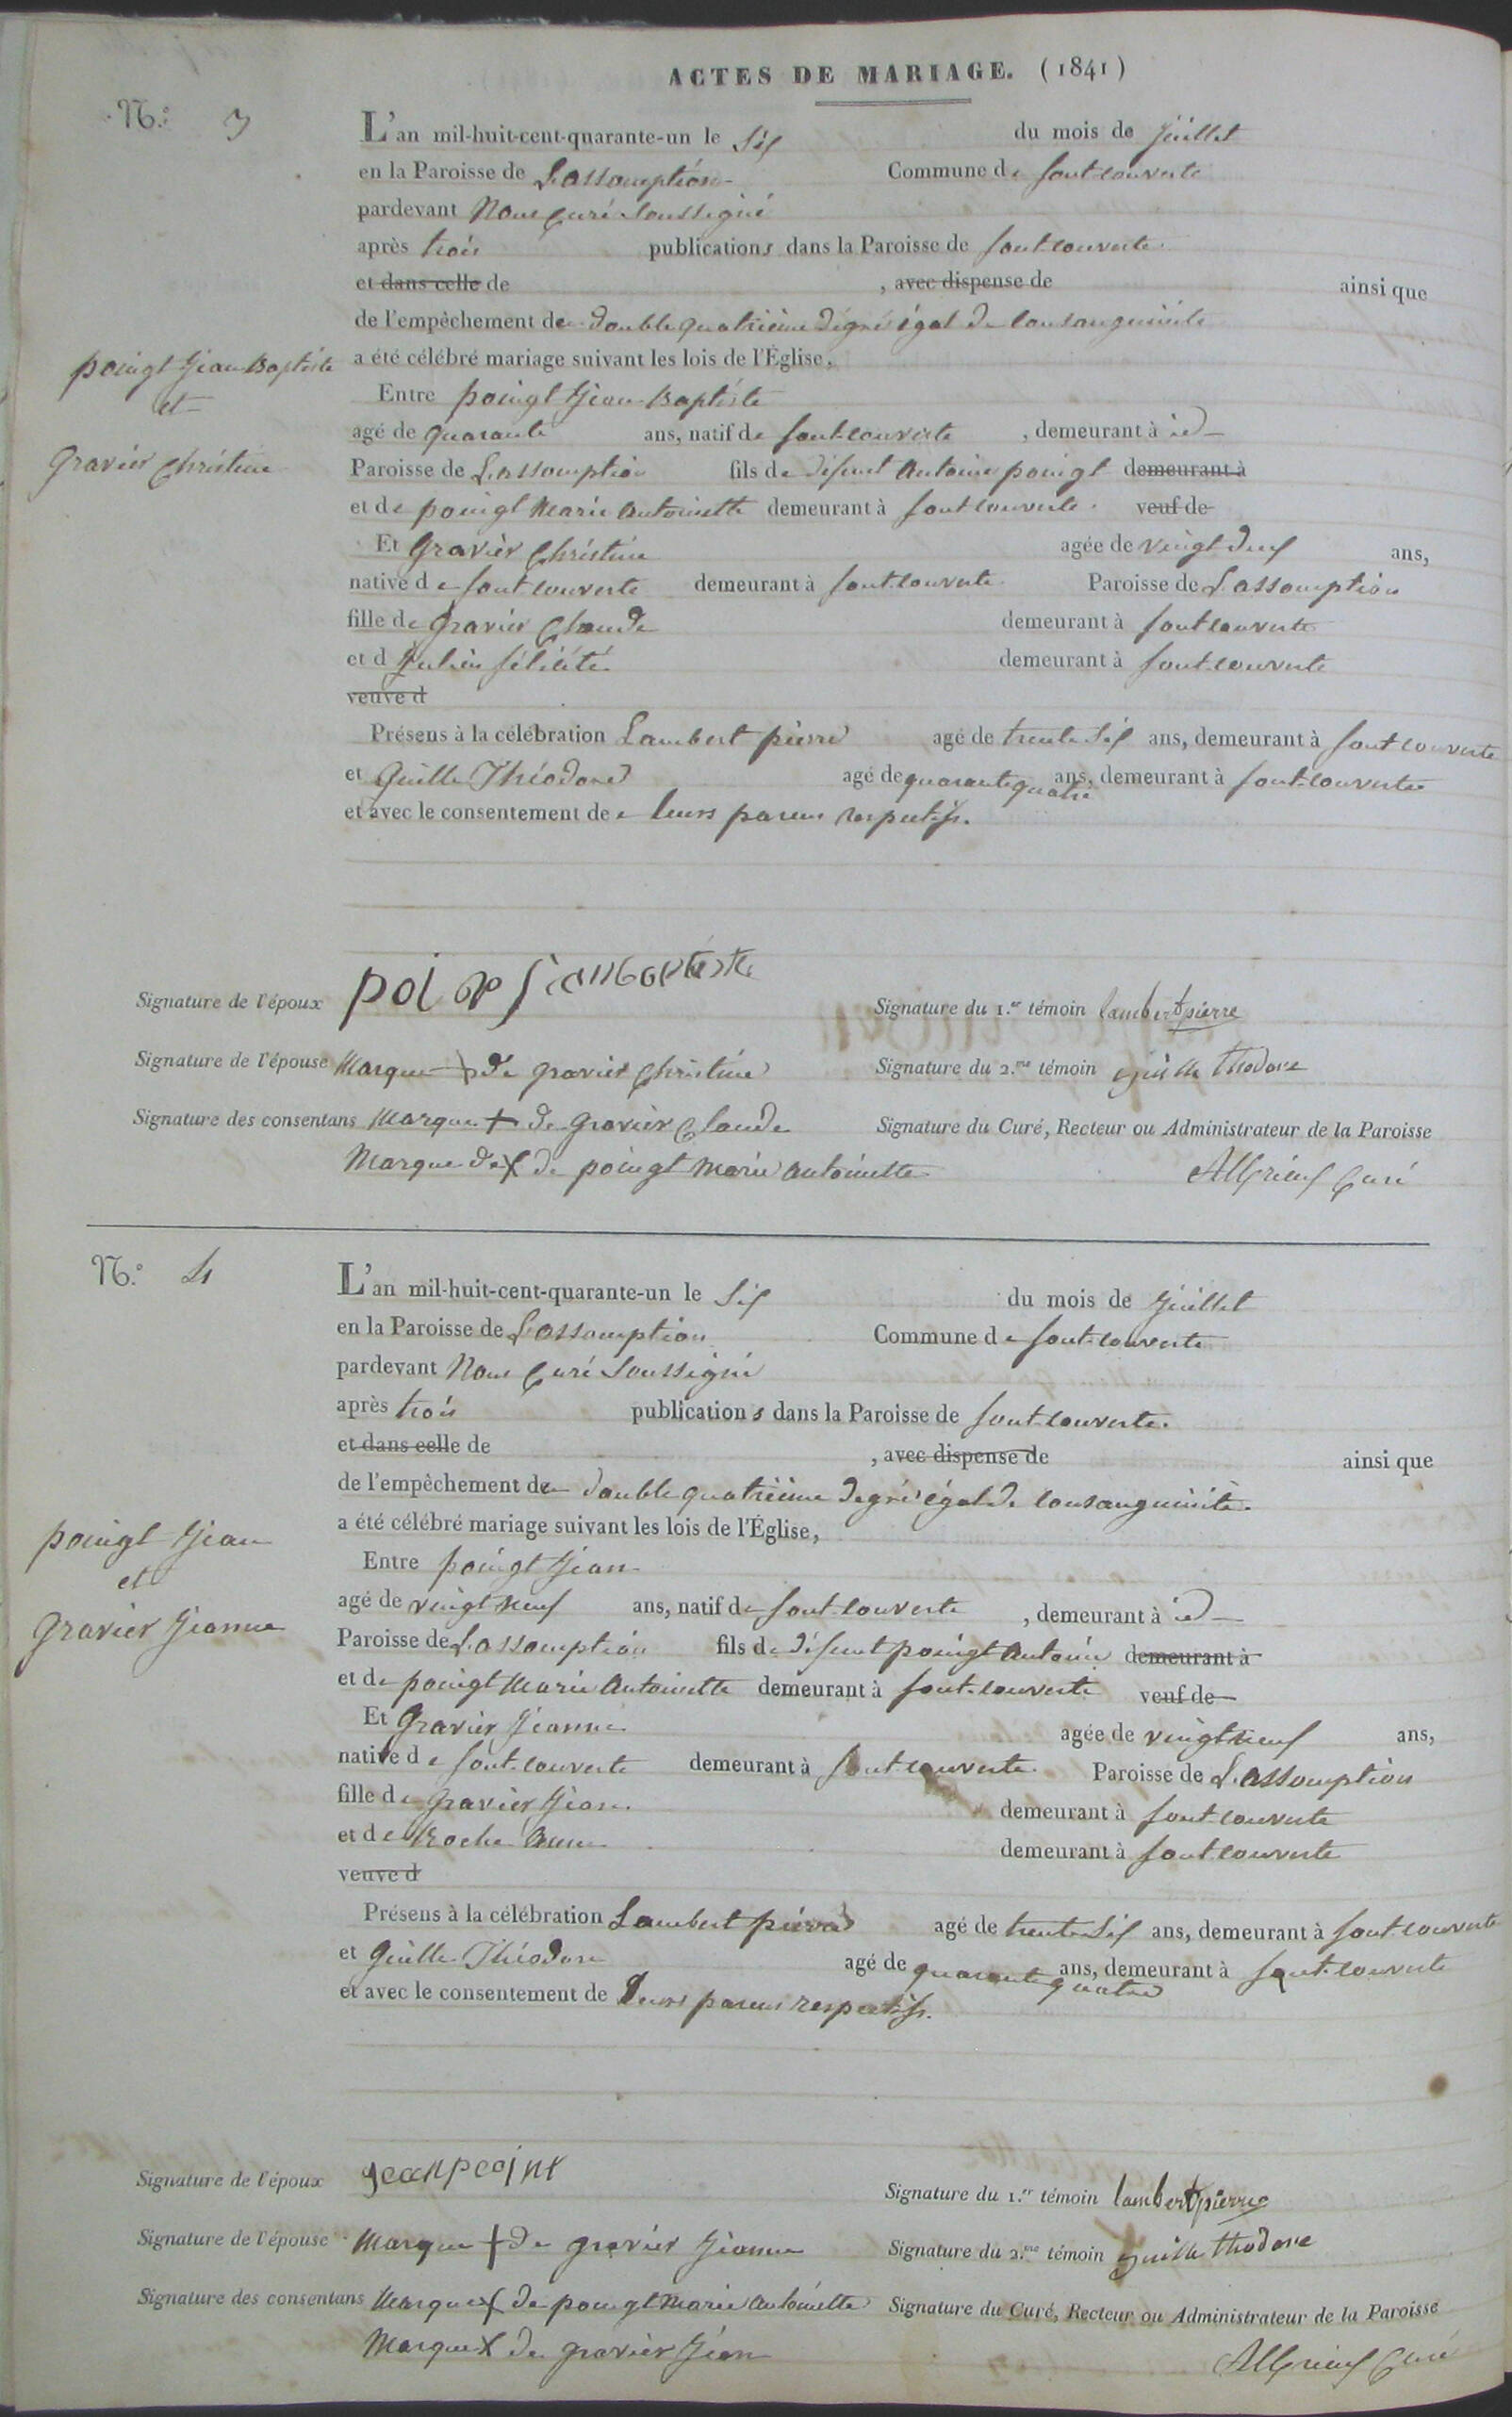 ACTES DE MARIAGE. (1841)
N.º 3
L'an mil-huit-cent-quarante-un le Six du mois de Juillet
en la Paroisse de L'assomption Commune de font-couverte
pardevant Nous Curé soussigné
après trois publications dans la Paroisse de font-couverte
et dans celle de , avec dispense de ainsi que
de l'empêchement de double quatrième dégré égal de consanguinité
a été célébré mariage suivant les lois de l'Église,
poingt Jean Baptiste
et
Gravier Christine
Entre poingt Jean-Baptiste
agé de quarante ans, natif de font-couverte , demeurant à id
Paroisse de L'assomption fils de défunt Antoine poingt demeurant à
et de poingt Marie Antoinette demeurant à font couverte veuf de
Et Gravier Christine agée de vingt deux ans,
native de font couverte demeurant à font-couverte Paroisse de L'assomption
fille de Gravier Claude demeurant à font couverte
et d félicité demeurant à font-couverte
veuve d
Présens à la célébration Lambert pierre agé de trente-Six ans, demeurant à font couverte
et Quille Théodore agé de quarante quatre ans, demeurant à font-couverte
et avec le consentement de leurs parens respectifs.
Signature de l'époux
Signature du 1.er témoin lambert pierre
Signature de l'épouse Marque + de gravier Christine
Signature du 2.me témoin quille thodore
Signature des consentans Marque + de Gravier Claude
Signature du Curé, Recteur ou Administrateur de la Paroisse
Marque de + de poingt Marie Antoinette
Curé
N.º 4
L'an mil-huit-cent-quarante-un le Six du mois de Juillet
en la Paroisse de L'assomption Commune de font-couverte
pardevant Nous Curé Soussigné
après trois publications dans la Paroisse de font-couverte.
et dans celle de , avec dispense de ainsi que
de l'empêchement de double quatrième degré égal de consanguinité.
a été célébré mariage suivant les lois de l'Église,
poingt Jean
et
gravier Jeanne
Entre poingt Jean
agé de vingt neuf ans, natif de font-couverte , demeurant à id
Paroisse de L'assomption fils de défunt poingt Antoine demeurant à
et de poingt Marie Antoinette demeurant à font-couverte veuf de
Et Gravier Jeanne agée de vingt neuf ans,
native de font-couverte demeurant à font couverte Paroisse de L'assomption
fille de gravier Jean demeurant à font couverte
et de Roche Anne demeurant à font-couverte
veuve d
Présens à la célébration Lambert pierre agé de trente-Six ans, demeurant à font-couverte
et Quille Théodore agé de quarante quatre ans, demeurant à font-couverte
et avec le consentement de leurs parens respectifs.
Signature de l'époux jean point
Signature du 1.er témoin lambert pierre
Signature de l'épouse Marque + de gravier Jeanne
Signature du 2.me témoin quille thodore
Signature des consentans Marque + de poingt Marie Antoinette
Signature du Curé, Recteur ou Administrateur de la Paroisse
Marque + de gravier Jean
Curé